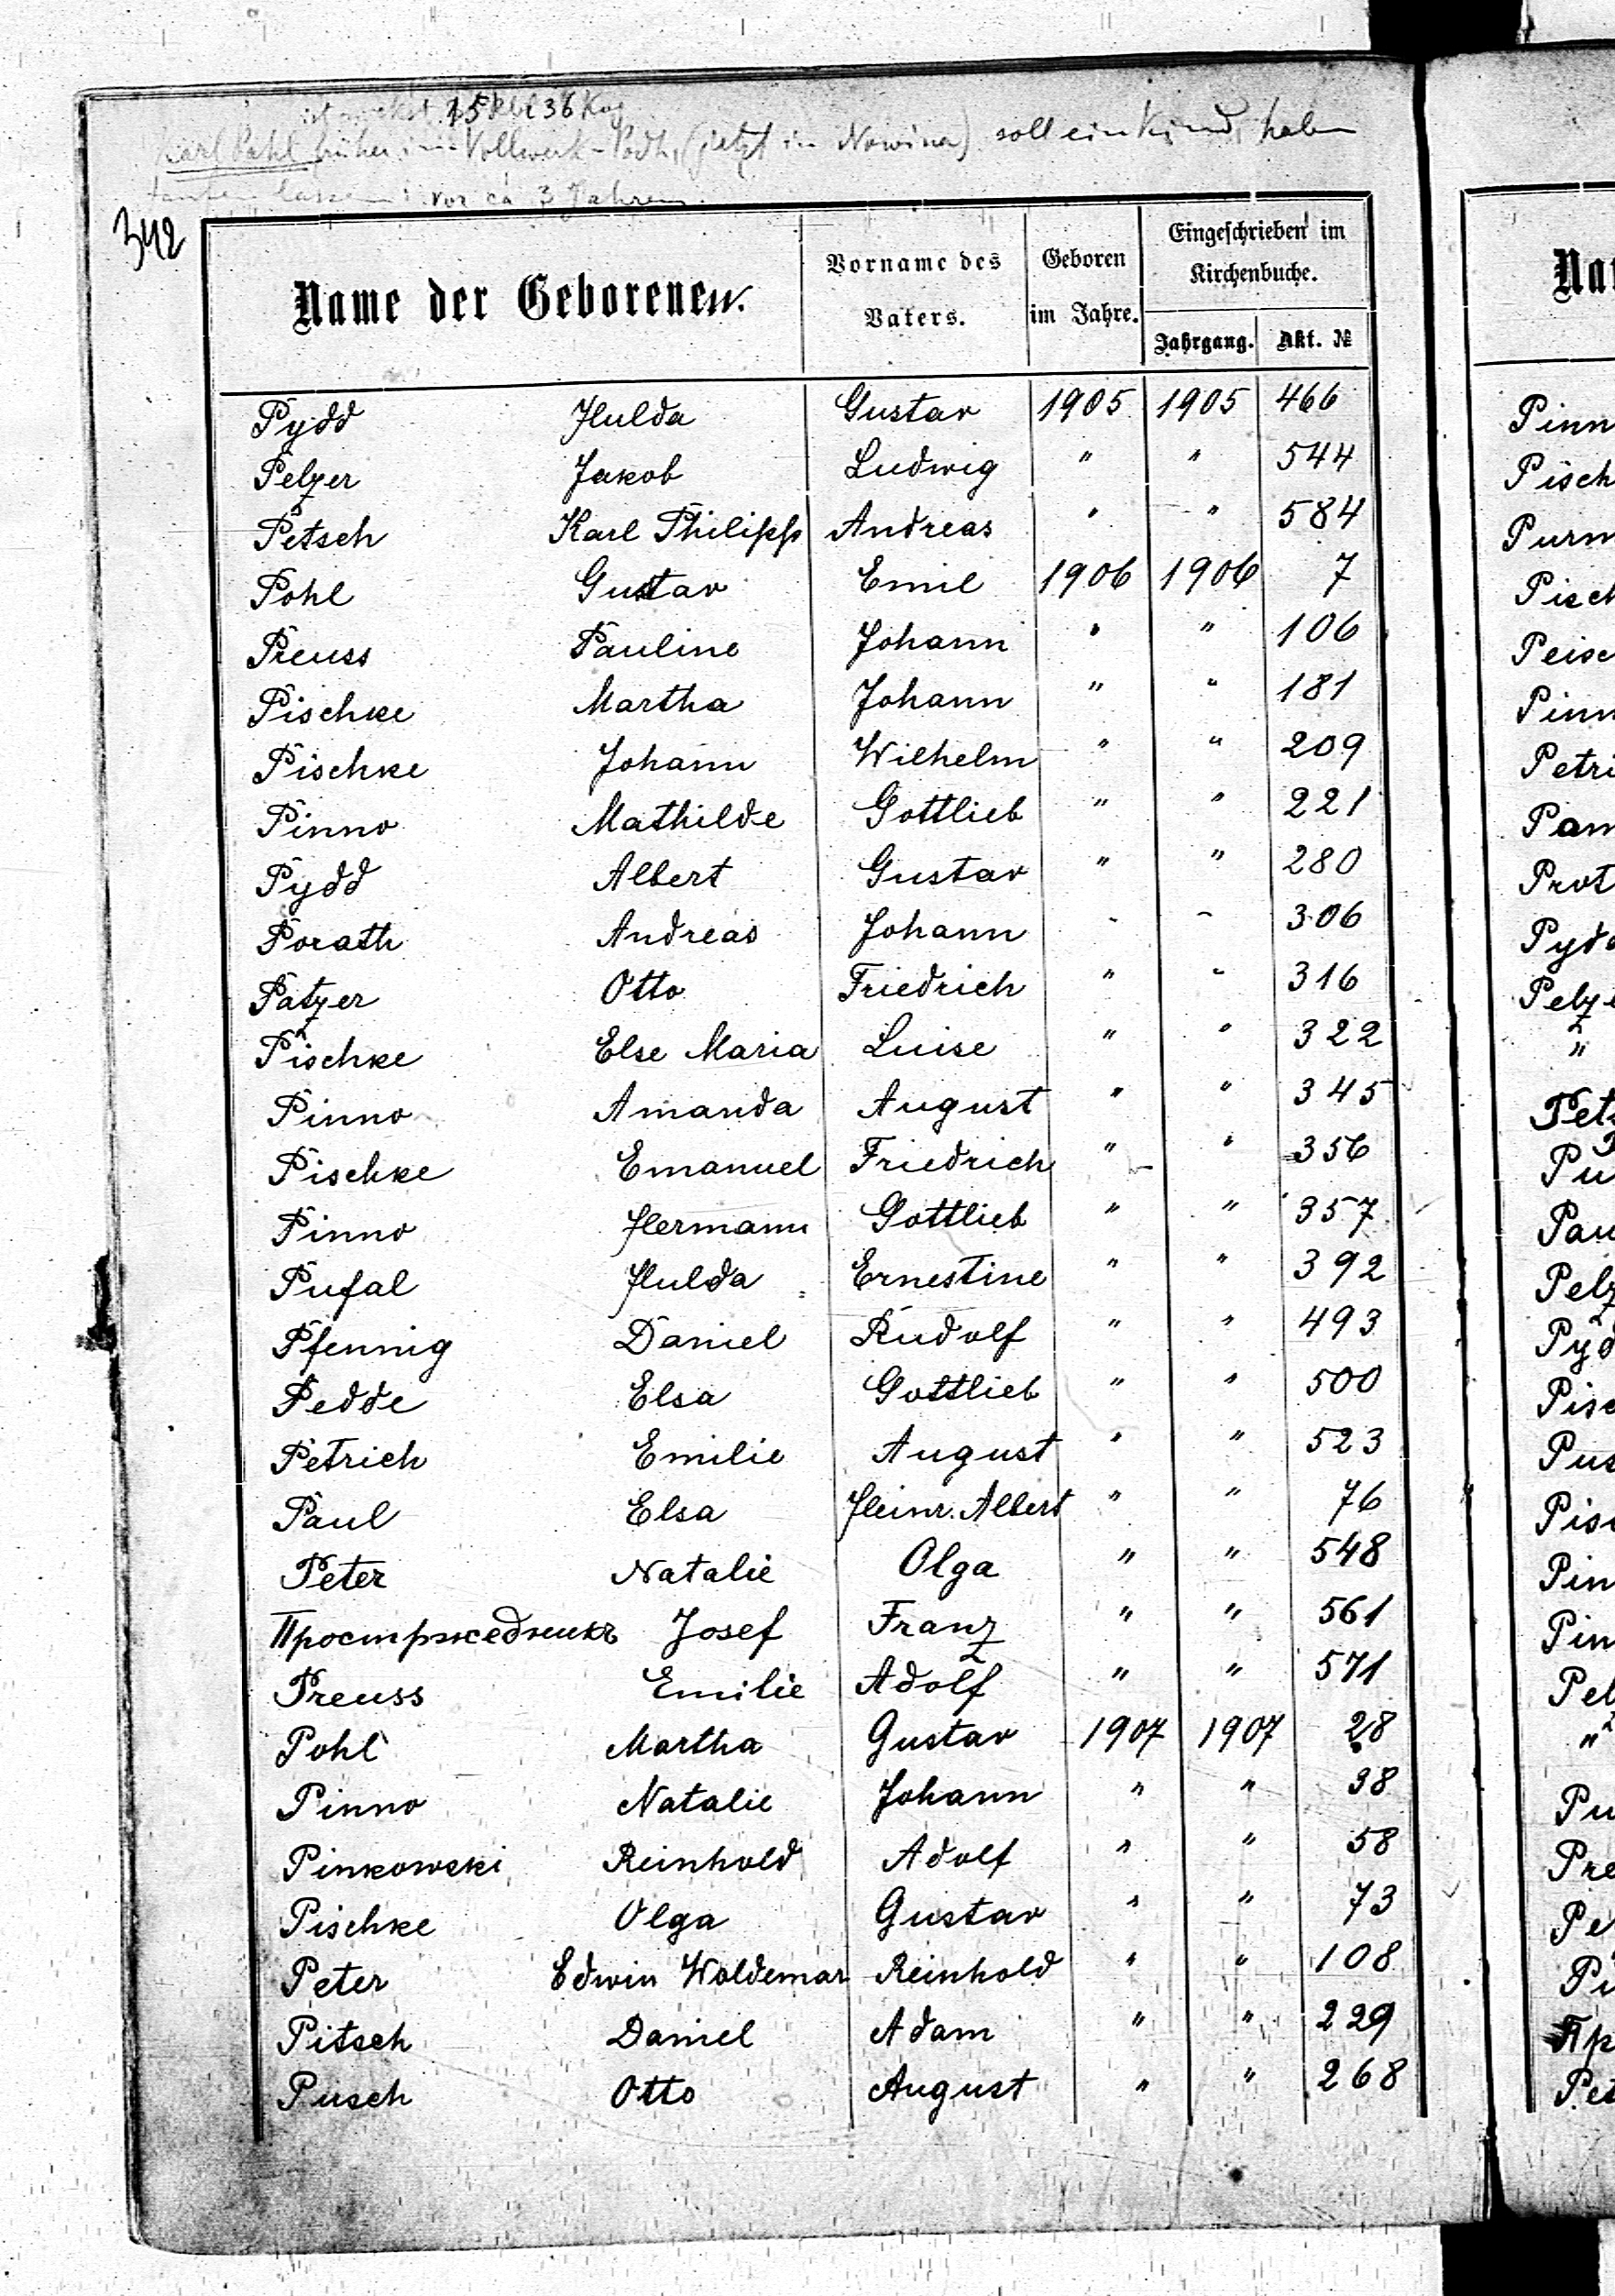 15 Rbl 36 Kop
Karl Pahl früher in Vollwerk-Podh, (jetzt in Nowina) soll ein Kind haben
taufen lassen vor ca 3 Jahren.
342
Name der Geborenen. Vorname des Vaters. Geboren im Jahre. Eingeschrieben im Kirchenbuche.
Jahrgang. Akt. №
Pydd Hulda Gustav 1905 1905 466
Pelzer Jakob Ludwig " " 544
Petsch Karl Philipp Andreas " " 584
Pohl Gustav Emil 1906 1906 7
Preuss Pauline Johann " " 106
Pischke Martha Johann " " 181
Pischke Johann Wilhelm " " 209
Pinno Mathilde Gottlieb " " 221
Pydd Albert Gustav " " 280
Porath Andreas Johann " " 306
Patzer Otto Friedrich " " 316
Pischke Else Maria Luise " " 322
Pinno Amanda August " " 345
Pischke Emanuel Friedrich " " 356
Pinno Hermann Gottlieb " " 357
Pufal Hulda Ernestine " " 392
Pfennig Daniel Rudolf " " 493
Pedde Elsa Gottlieb " " 500
Petrich Emilie August " " 523
Paul Elsa Heinr. Albert " " 76
Peter Natalie Olga " " 548
Простржедникъ Josef Franz " " 561
Preuss Emilie Adolf " " 571
Pohl Martha Gustav 1907 1907 28
Pinno Natalie Johann " " 38
Pinkowski Reinhold Adolf " " 58
Pischke Olga Gustav " " 73
Peter Edwin Woldemar Reinhold " " 108
Pitsch Daniel Adam " " 229
Pusch Otto August " " 268
Na
Pinn
Pisch
Purm
Pisch
Peisc
Pinn
Petri
Pam
Prot
Pydd
Pelze
"
Pets
Pu
Pau
Pelz
Pyd
Pisc
Pus
Pis
Pin
Pin
Pel
"
Pu
Pre
Pe
Pi
Пр
Pet